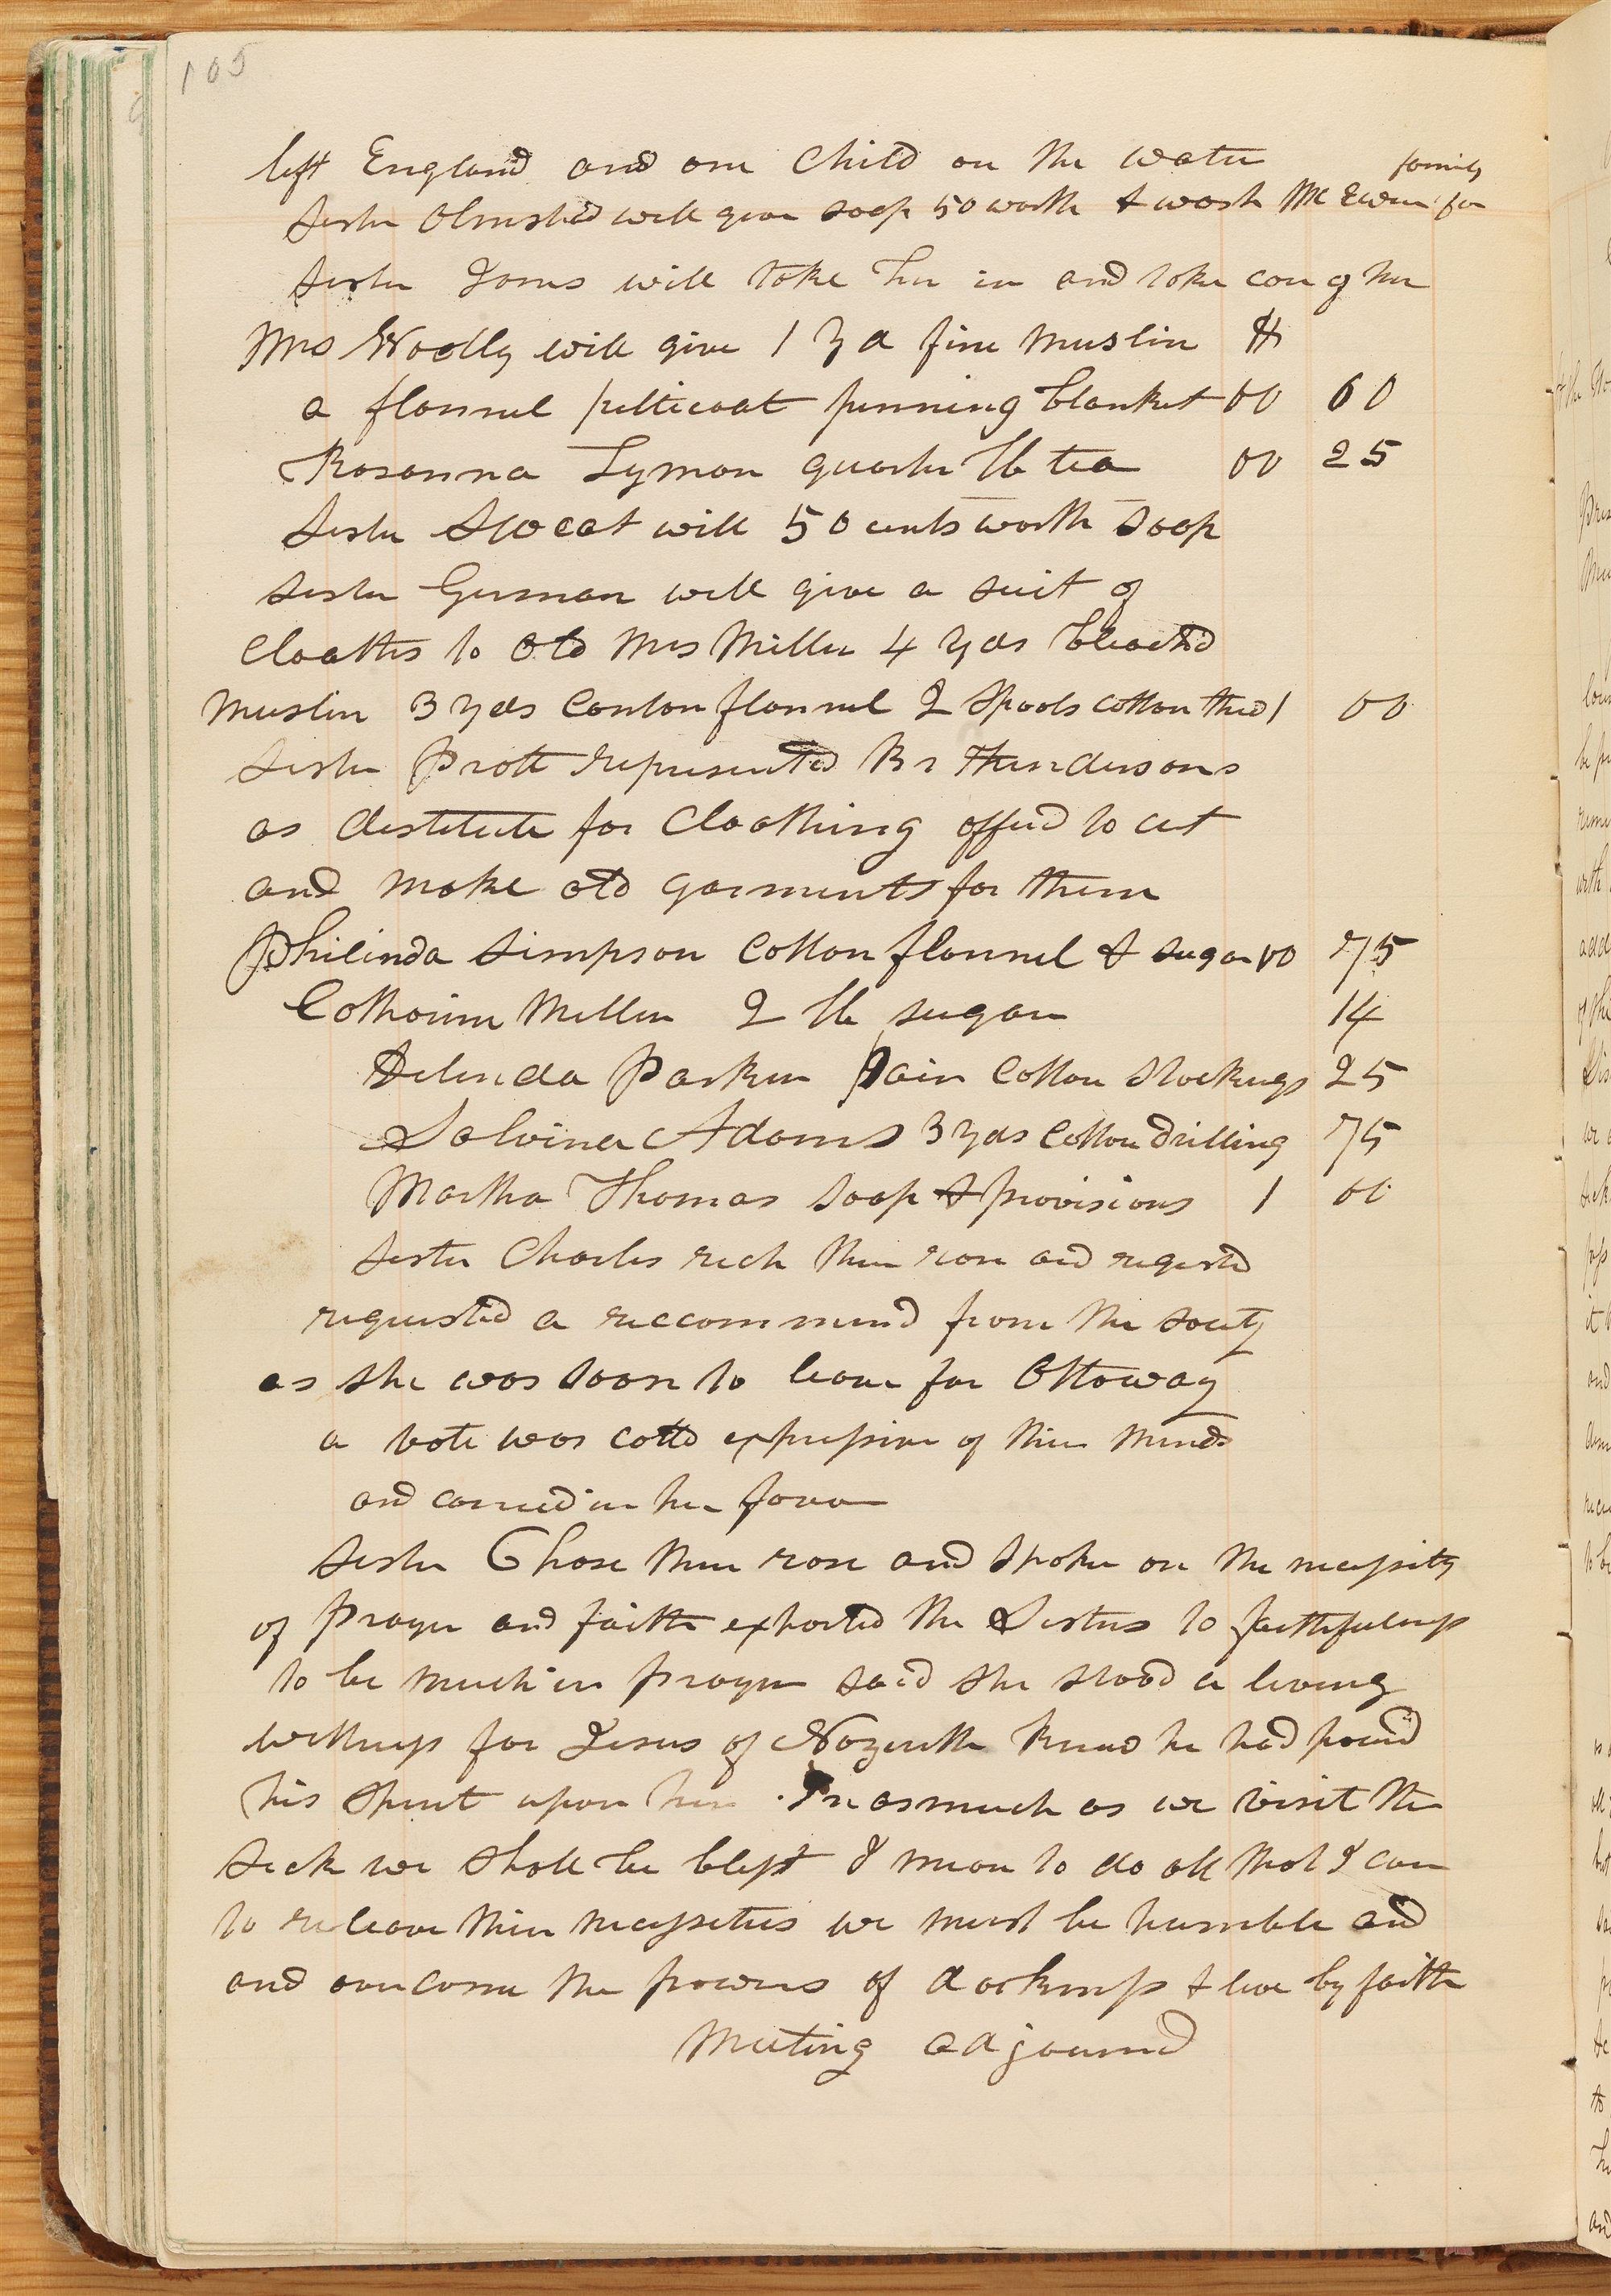 105
left England and one Child on the water
family
Sister Olmsted will give soap 50 worth & wash Mc Ewen for
Sister Jones will take her in and take care of her
Mrs Woolly will give 1 yd fine muslin $
a flannel petticoat pinning blanket 00 60
Rosanna Lyman quarter lb tea 00 25
Sister Sweat will 50 cents worth soap
Sister German will give a suit of
cloaths to old Mrs Miller 4 yds bleached
muslin 3 yds Canton flannel 2 Spools cotton thred 1 00
Sister Pratt represented Br Hendersons
as destitute for Cloathing offerd to cut
and make old garments for them
Philinda Simpson Cotton flannel & sugar 00 75
Catharine Miller 2 lb sugar 14
Delinda Parker Pair Cotton stockings 25
Salvina Adams 3 yds Cotton drilling 75
Martha Thomas soap & provisions 1 00
Sister Charles rich then rose and requested
requested a reccommend from the society
as she was soon to leave for Ottoway
a vote was calld expressive of thier minds
and carried in her favor
Sister Chase then rose and spoke on the necessity
of prayer and faith exhorted the Sisters to faithfulness
to be much in prayer said she stood a living
wittness for Jesus of Nazereth knew he had poured
his spirit upon her . In as much as we visit the
sick we shall be blest I mean to do all that I can
to releave thier necessities we must be humble and
and overcome the powers of darkness & live by faith
Meeting adjourned